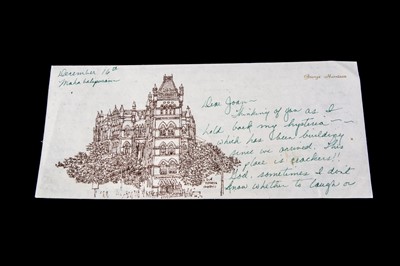 December 16th
Mahabalipuram
George Harrison
Dear Joan—
Thinking of you as I
hold back my hysteria——
which has been building
since we arrived. This
place is crackers!!
God, sometimes I don't
know whether to laugh or